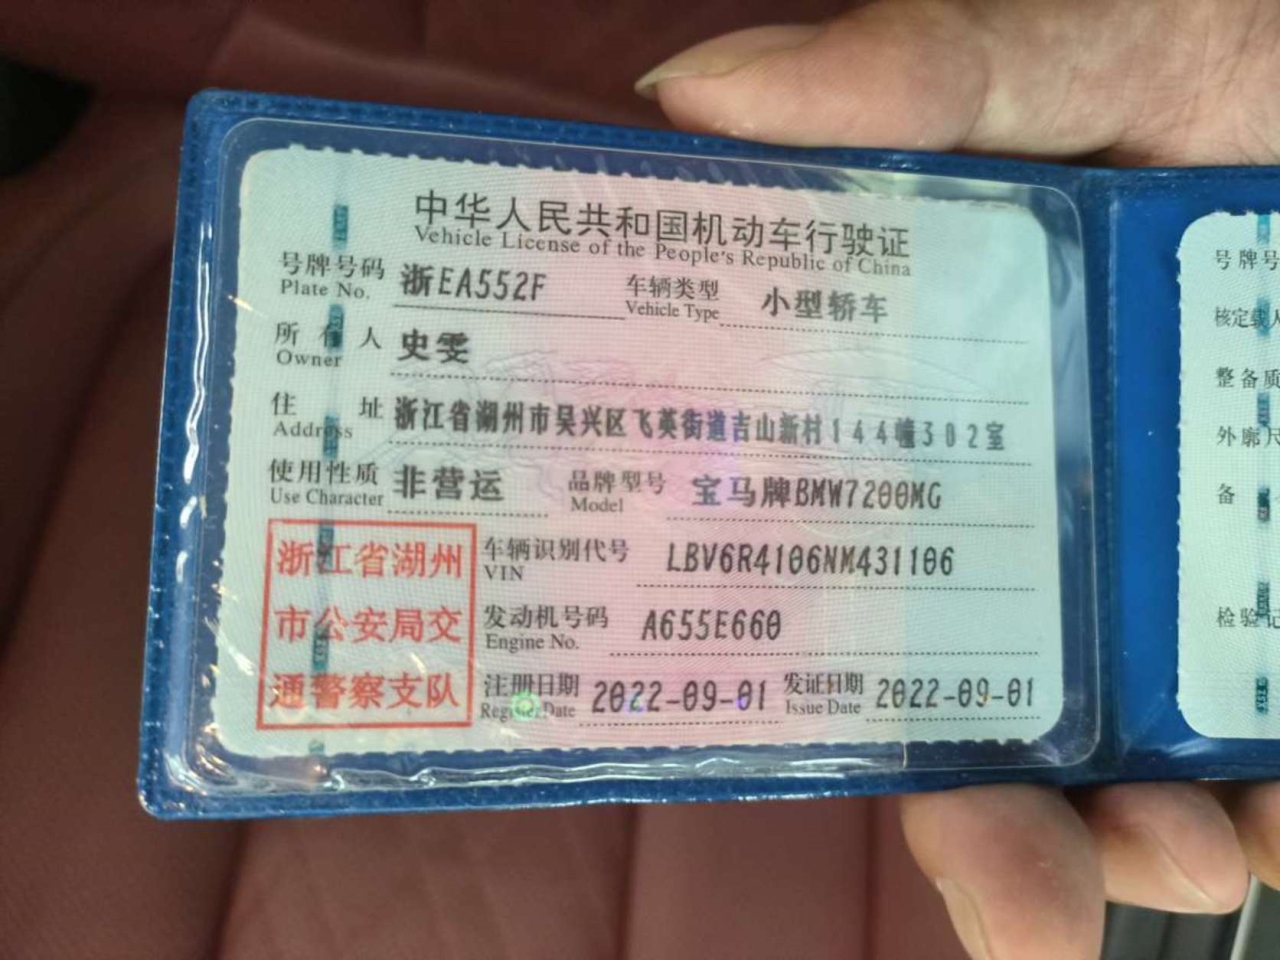 中华人民共和国机动车行驶证
Vehicle License of the People's Republic of China
号牌号码 浙EA552F 车辆类型 小型轿车
Plate No. Vehicle Type
所有人 史雯
Owner
住址 浙江省湖州市吴兴区飞英街道吉山新村144幢302室
Address
使用性质 非营运 品牌型号 宝马牌BMW7200MG
Use Character Model
浙江省湖州
市公安局交
通警察支队
车辆识别代号 LBV6R4106NM431106
VIN
发动机号码 A655E660
Engine No.
注册日期 2022-09-01 发证日期 2022-09-01
Register Date Issue Date
号牌号
核定载人
整备质
外廓尺
备
检验记